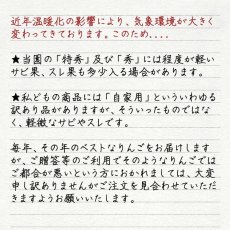 近年温暖化の影響により、気象環境が大きく
変わってきております。このため、...
★当園の「特秀」及び「秀」には程度が軽い
サビ果、スレ果も多少入る場合があります。
★私どもの商品には「自家用」といういわゆる
訳あり品がありますが、そういったものではな
く、軽微なサビやスレです。
毎年、その年のベストなりんごをお届けします
が、ご贈答等のご利用でそのようなりんごでは
ご都合が悪いという方におかれましては、大変
申し訳ありませんがご注文を見合わせていただ
きますようお願いいたします。